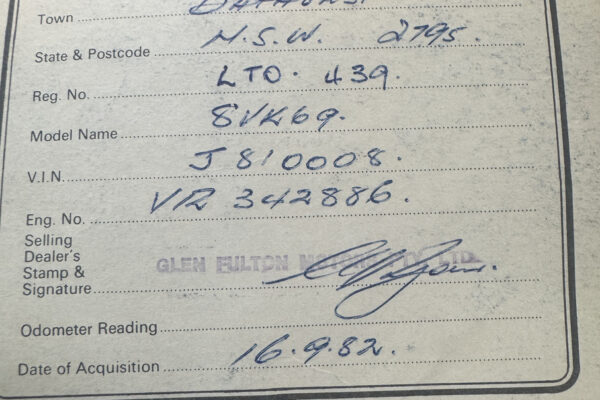 Town
State & Postcode N.S.W. 2795.
Reg. No. LTO. 439.
Model Name 8VK69.
V.I.N. J810008.
Eng. No. VR 342886.
Selling
Dealer's
Stamp & GLEN FULTON MOTORS PTY. LTD.
Signature
Odometer Reading
Date of Acquisition 16.9.82.